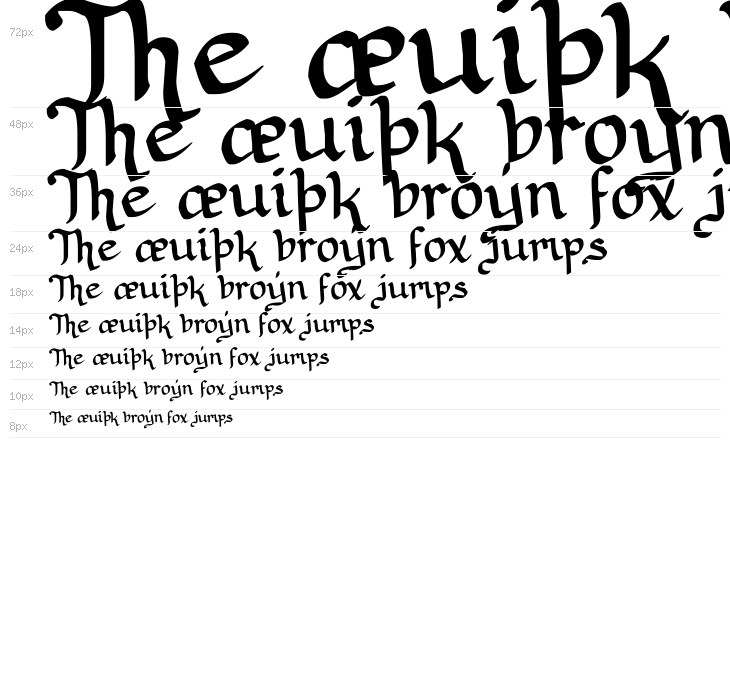 72px The æuiþk
48px The æuiþk broýn
36px The æuiþk broýn fox
24px The æuiþk broýn fox jumps
18px The æuiþk broýn fox jumps
14px The æuiþk broýn fox jumps
12px The æuiþk broýn fox jumps
10px The æuiþk broýn fox jumps
8px The æuiþk broýn fox jumps